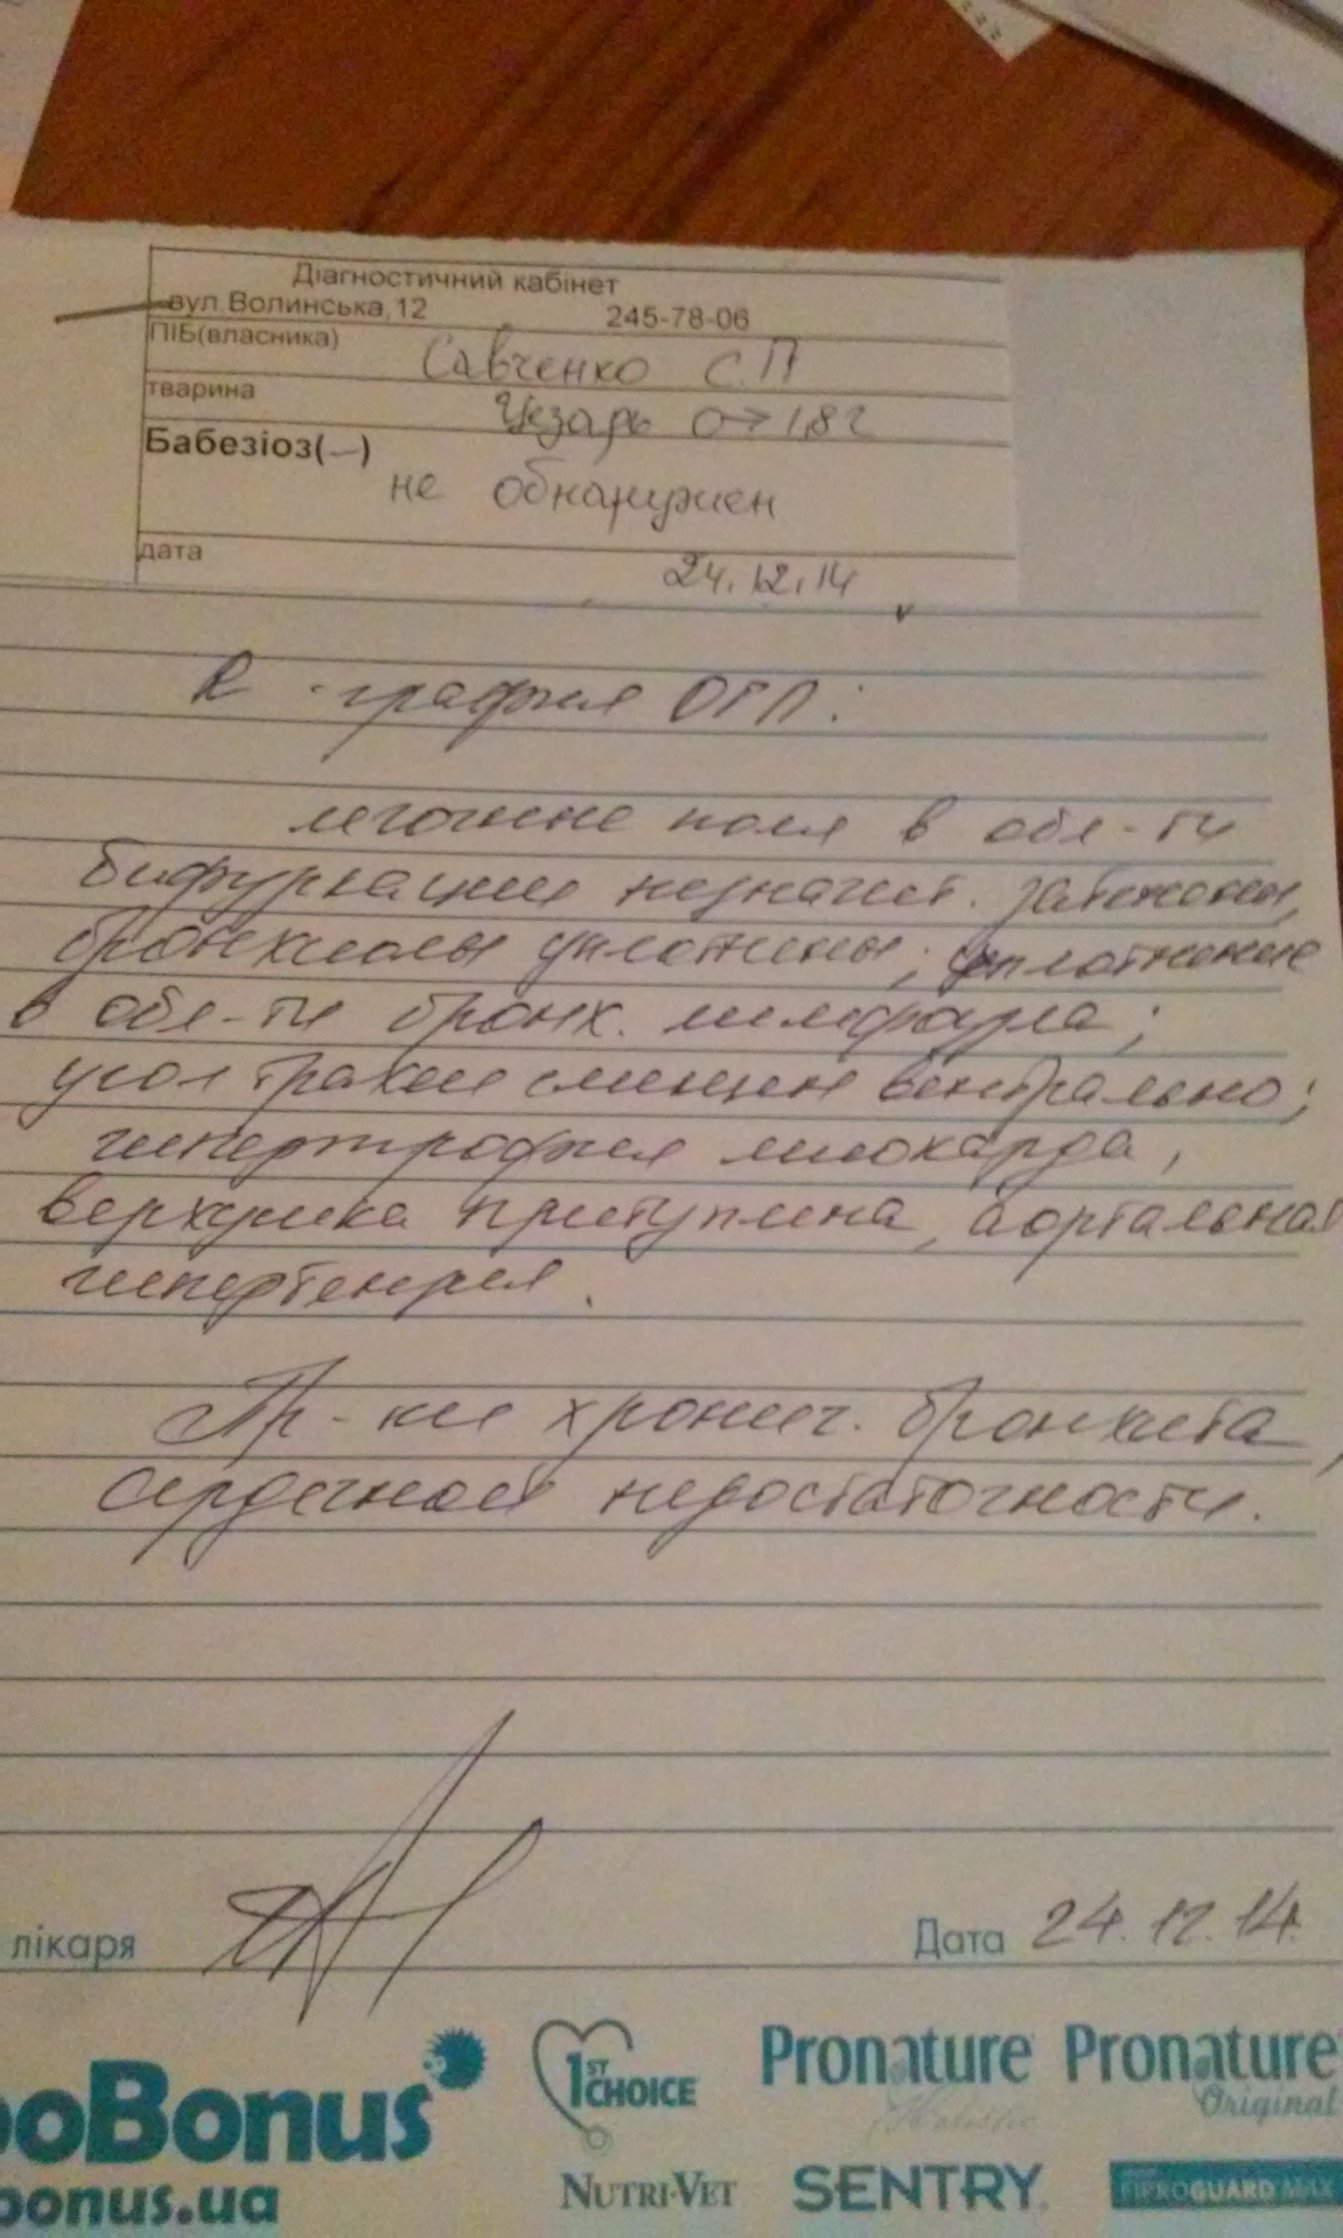 Діагностичний кабінет
вул Волинська, 12 245-78-06
ПІБ(власника) Савченко С.П
тварина Цезарь 1,8г
Бабезіоз(—)
не обнаружен
дата 24.12.14
R - графия ОГП:
легочные поля в обл-ти
бифуркации незначит. затемнены,
бронхиолы уплотнены; уплотнение
в обл-ти бронх. лимфоузла;
угол трахеи смещен вентрально;
гипертрофия миокарда,
верхушка притуплена, аортальная
гипертензия.
Пр-ки хронич. бронхита,
сердечной недостаточности.
лікаря Дата 24.12.14
ooBonus
bonus.ua
1ST CHOICE
Pronature Holistic
Pronature Original
NUTRI-VET
SENTRY
FIPROGUARD MAX